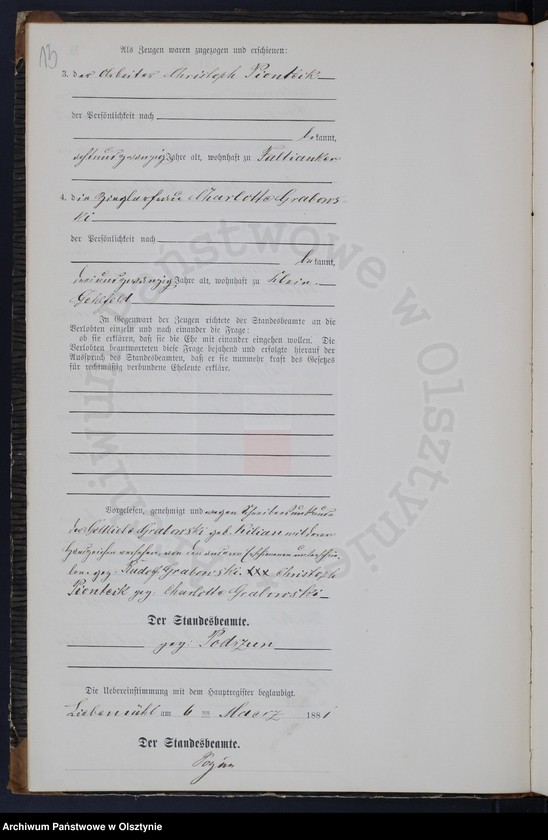 13
Als Zeugen waren zugezogen und erschienen:
3. der Arbeiter Christoph Pionteik
der Persönlichkeit nach
bekannt,
achtundzwanzig Jahre alt, wohnhaft zu Taltianken
4. die Zieglerfrau Charlotte Grabows-
ki
der Persönlichkeit nach
bekannt,
dreiundzwanzig Jahre alt, wohnhaft zu Klein
Gehlfeld
In Gegenwart der Zeugen richtete der Standesbeamte an die
Verlobten einzeln und nach einander die Frage:
ob sie erklären, daß sie die Ehe mit einander eingehen wollen. Die
Verlobten beantworteten diese Frage bejahend und erfolgte hierauf der
Ausspruch des Standesbeamten, daß er sie nunmehr kraft des Gesetzes
für rechtmäßig verbundene Eheleute erkläre.
Vorgelesen, genehmigt und wegen Schreibensunkunde
der Gottliebe Grabowski geb. Kilian mit deren
Handzeichen versehen, von den anderen unterschrie-
ben gez. Rudolf Grabowski. XXX Christoph
Pionteik gez. Charlotte Grabowski
Der Standesbeamte.
gez. Podszun
Die Uebereinstimmung mit dem Hauptregister beglaubigt.
Liebemühl am 6 ten Maerz 1881
Der Standesbeamte.
Archiwum Państwowe w Olsztynie
Archiwum Państwowe w Olsztynie